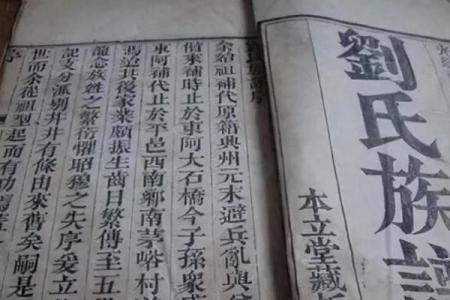 劉氏族譜
本立堂藏
氏族譜序
余始祖補代原籍興州元末避兵亂與
偕來補時止於東阿大石橋今子孫衆
東阿補代止於平邑西南鄉南茅峪村
其後家業頗振生齒日繁傳至五
龍念族姓之繁衍懼昭穆之失序爰立
記支分派別井井有條由來舊矣嗣是
世而余從祖型起而有功焉